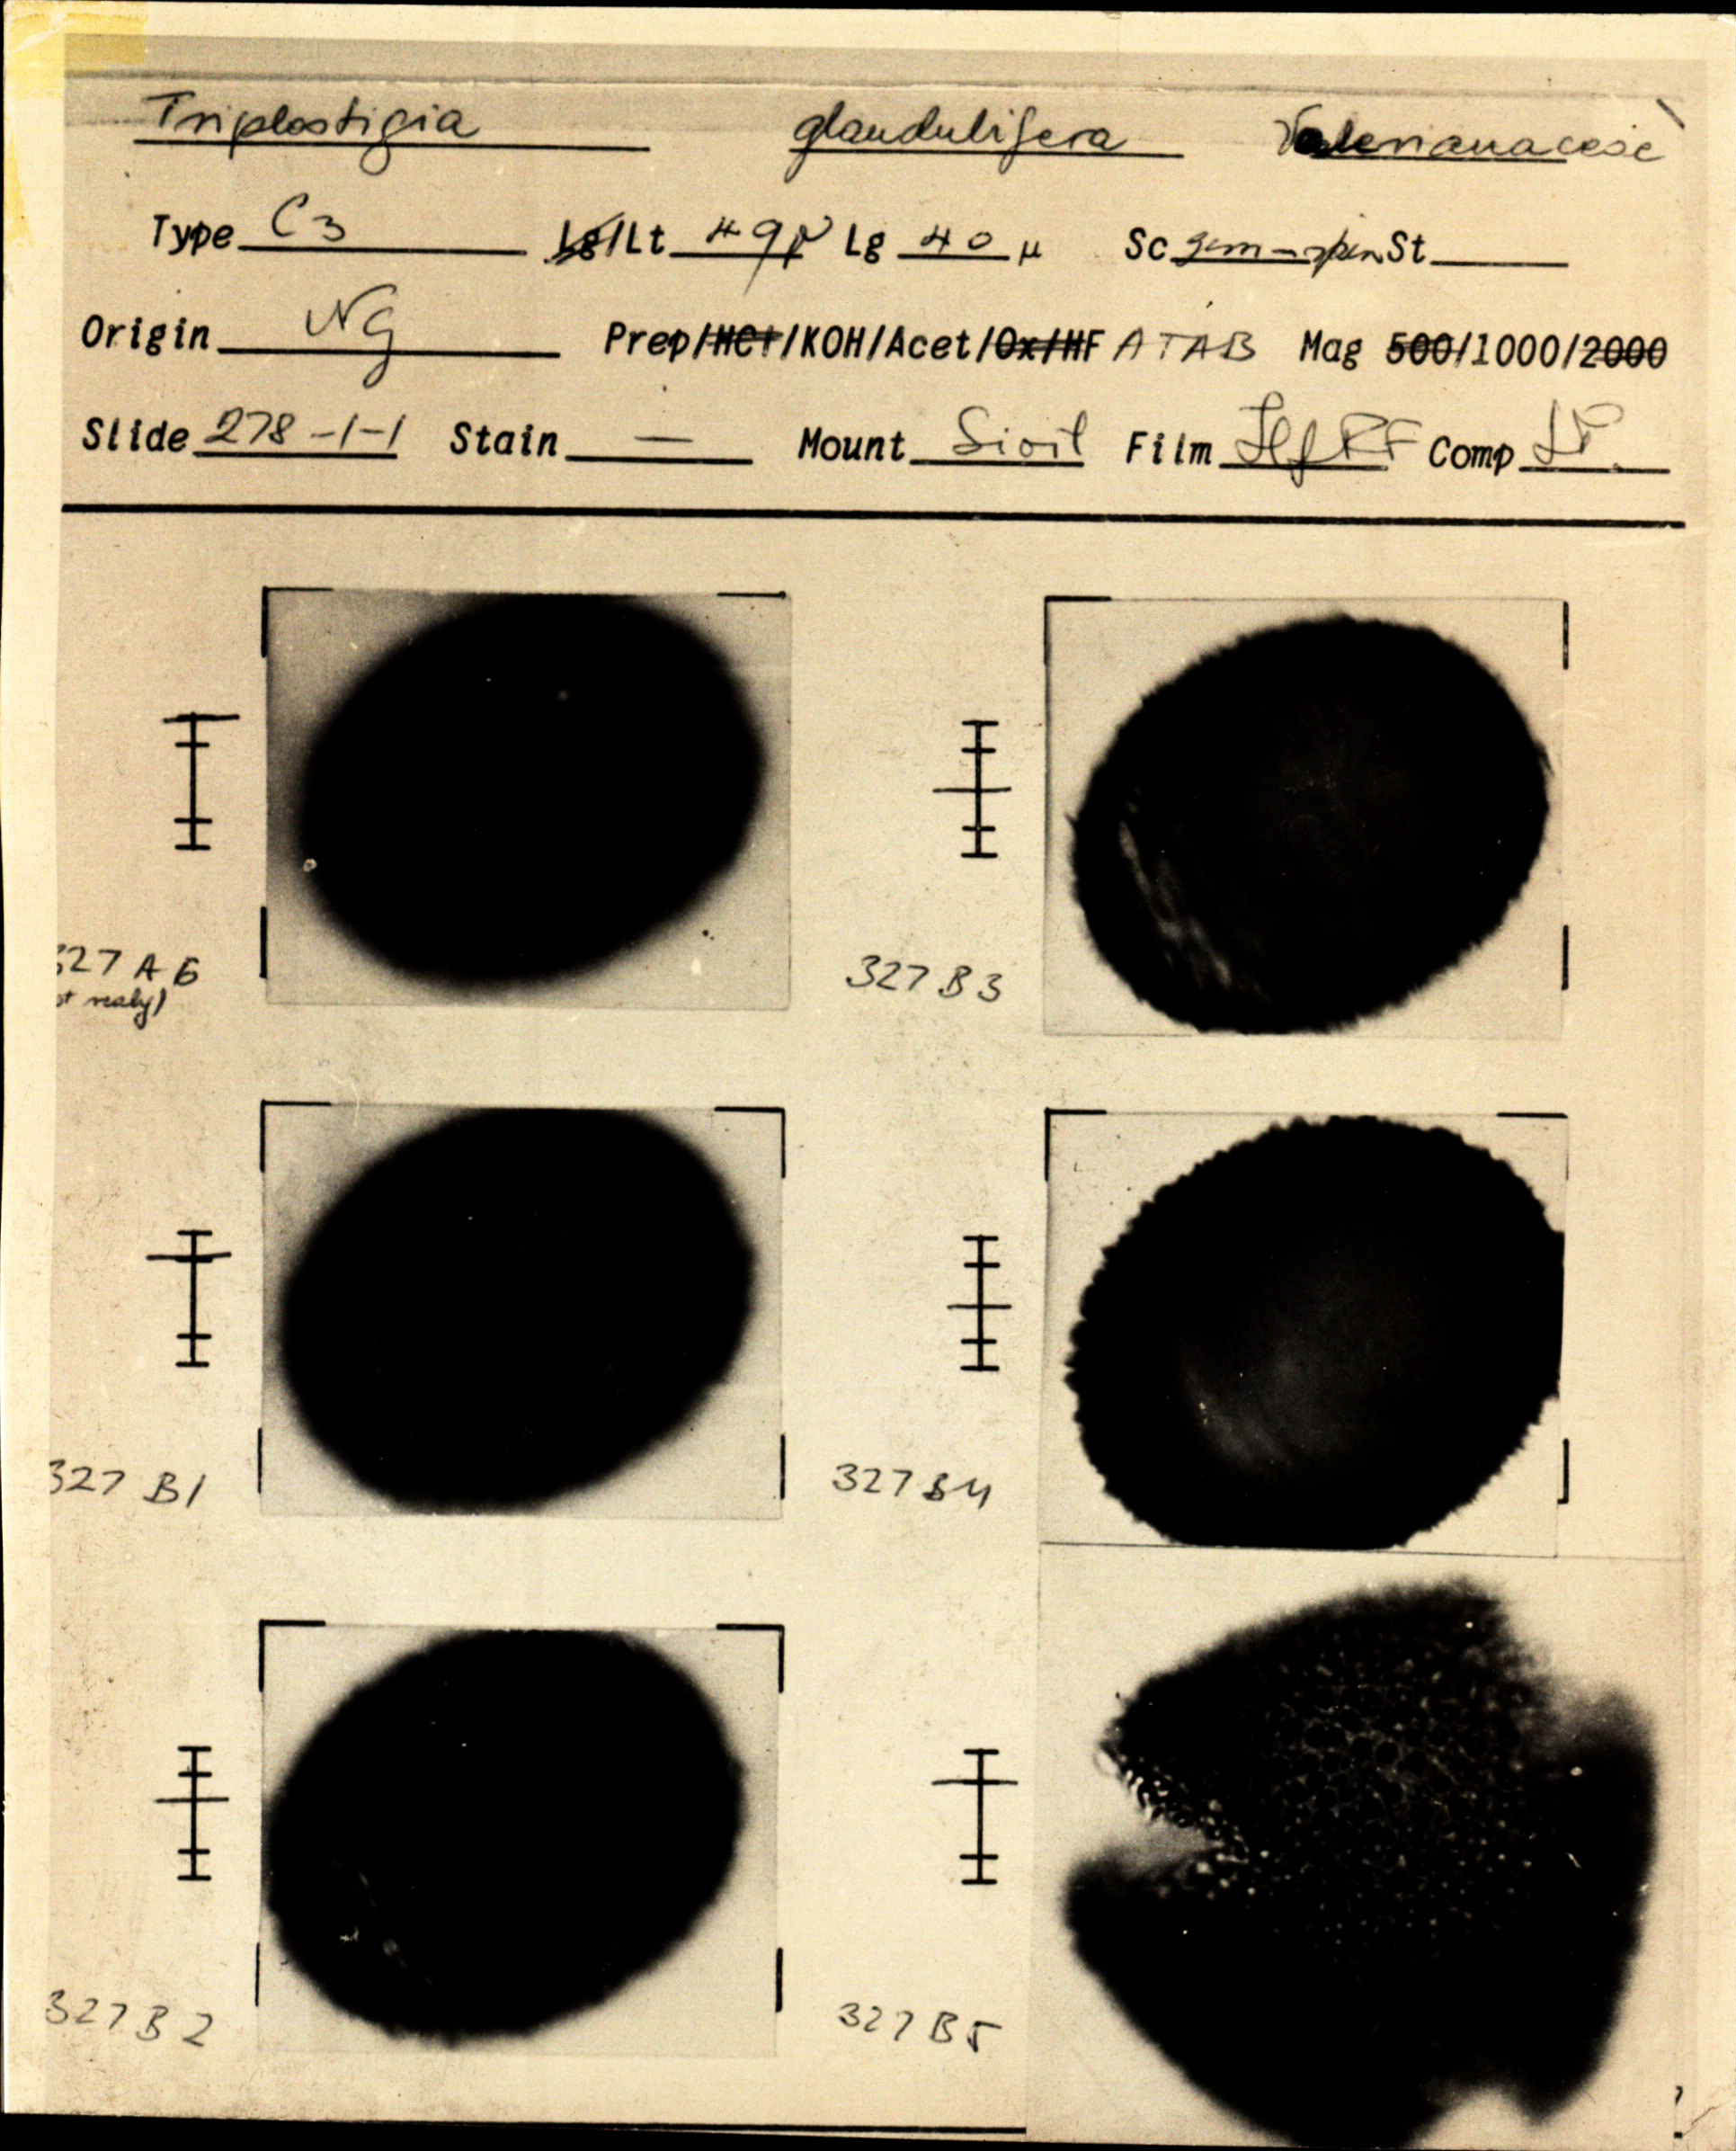 Triplostigia glandulifera Valerianaceae
Type C3 Lg/Lt 49μ Lg 40 μ Sc gem-spin St
Origin NG Prep/HCl/KOH/Acet/Ox/HF ATAB Mag 500/1000/2000
Slide 278-1-1 Stain — Mount Sioil Film Comp
327 A6 327 B3
327 B1 327 B4
327 B2 327 B5